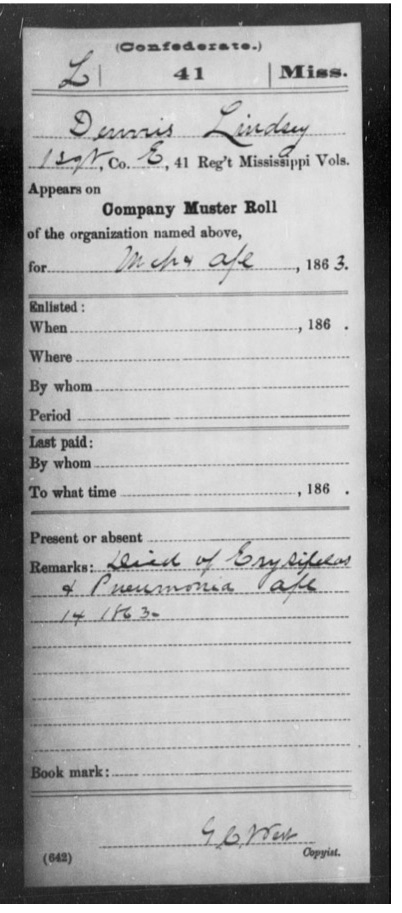 (Confederate.)
L | 41 | Miss.
Dennis Lindsey
1 Sgt, Co. E, 41 Reg't Mississippi Vols.
Appears on
Company Muster Roll
of the organization named above,
for Mch & Apl, 1863.
Enlisted:
When , 186 .
Where
By whom
Period
Last paid:
By whom
To what time , 186 .
Present or absent
Remarks: Died of Erysipelas
& Pneumonia Apl
14 1863
Book mark:
G C West
(642) Copyist.